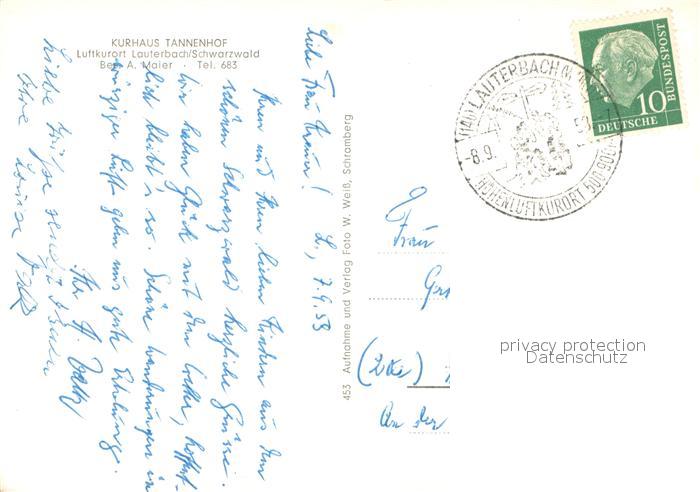 KURHAUS TANNENHOF
Luftkurort Lauterbach/Schwarzwald
Bes. A. Maier · Tel. 683
L., 7.9.58
Liebe Frau Kraum!
Ihnen und Ihren lieben Kindern aus dem
schönen Schwarzwald herzliche Grüsse.
Wir haben Glück mit dem Wetter, hoffent-
lich bleibt's so. Schöne Wanderungen in
würziger Luft geben uns gute Erholung.
Ihr H.
Liebe Grüße sendet Ihnen
Ihre Luise
453 Aufnahme und Verlag Foto W. Weiß, Schramberg
(7746) LAUTERBACH
-8.9.58
HÖHENLUFTKURORT 500-900
DEUTSCHE BUNDESPOST
10
Frau
Ger
An der
privacy protection
Datenschutz